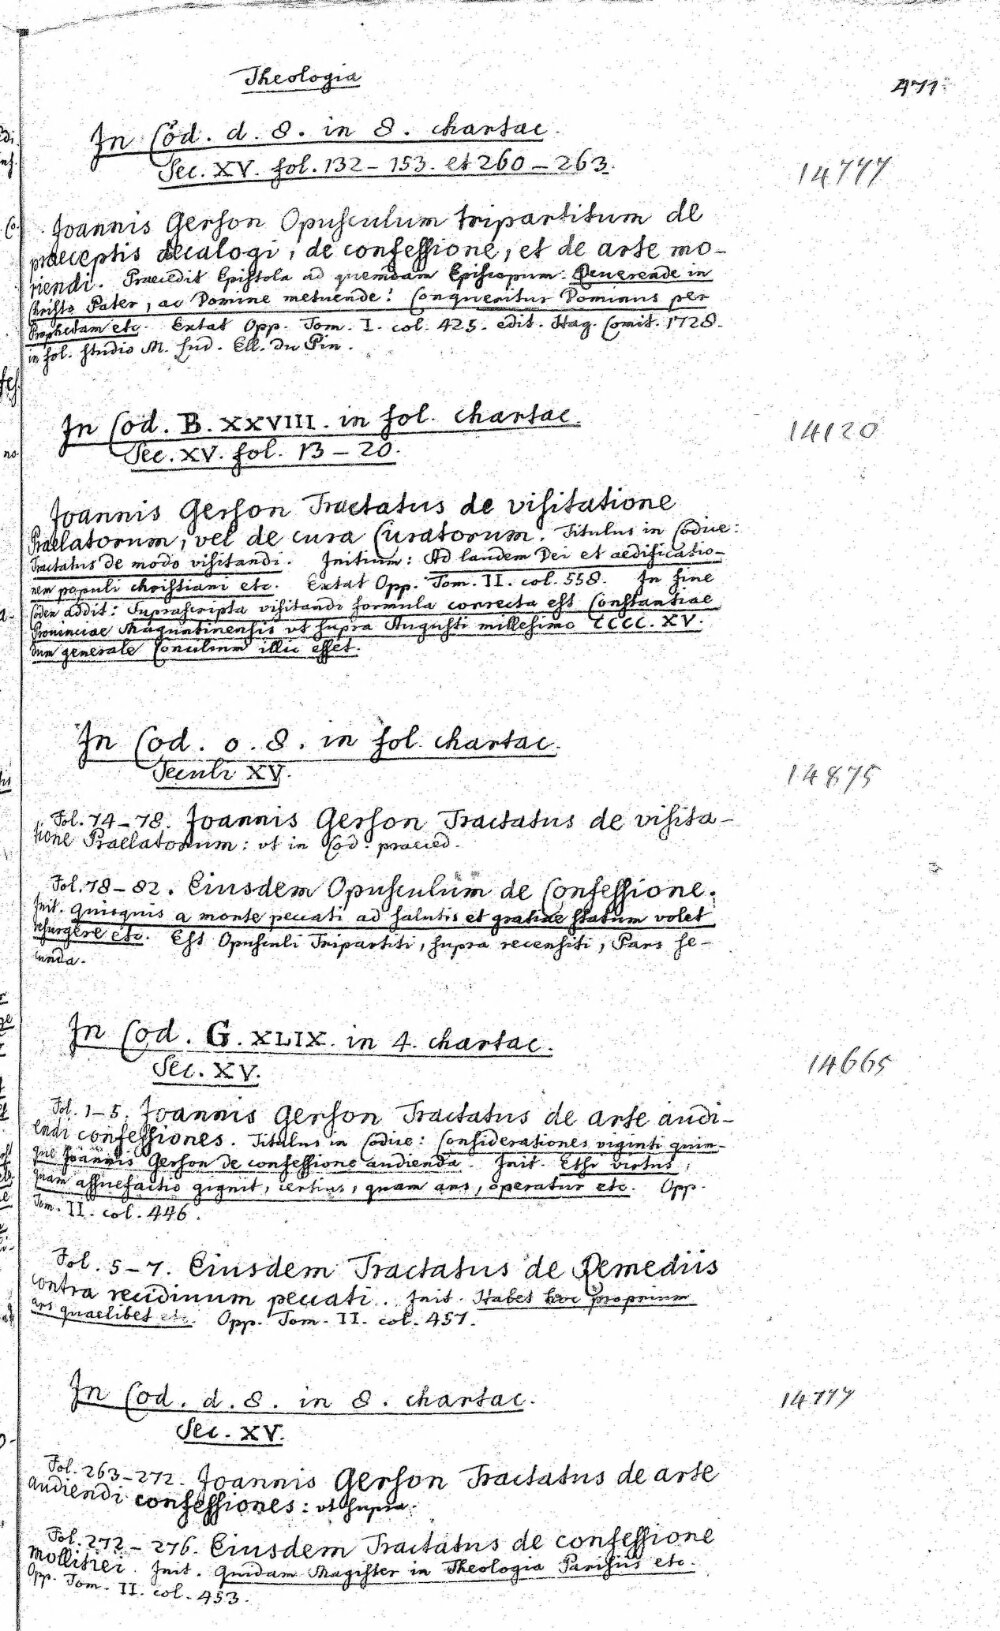 Theologia
471.
In Cod. d. 8. in 8. chartac.
Sec. XV. fol. 132 – 153. et 260 – 263.
14777
Joannis Gerson Opusculum tripartitum de
praeceptis decalogi, de confessione, et de arte mo-
riendi. Praecedit Epistola ad quemdam Episcopum: Reverende in
Christo Pater, ac Domine metuende: Conqueritur Dominus per
Prophetam etc. Extat Opp. Tom. I. col. 425. edit. Hag. Comit. 1728.
in fol. studio M. Lud. Ell. du Pin.
In Cod. B. XXVIII. in fol. chartac.
Sec. XV. fol. 13 – 20.
14120
Joannis Gerson Tractatus de visitatione
Praelatorum, vel de cura Curatorum. Titulus in Codice:
Tractatus de modo visitandi. Initium: Ad laudem Dei et aedificatio-
nem populi christiani etc. Extat Opp. Tom. II. col. 558. In fine
Codex addit: Suprascripta visitandi formula correcta est Constantiae
Provinciae Maguntinensis ut supra Augusti millesimo CCCC. XV.
dum generale Concilium illic esset.
In Cod. o. 8. in fol. chartac.
Seculi XV.
14875
Fol. 74–78. Joannis Gerson Tractatus de visita-
tione Praelatorum: ut in Cod. praeced.
Fol. 78–82. Eiusdem Opusculum de Confessione.
Init. Quisquis a morte peccati ad salutis et gratiae statum volet
resurgere etc. Est Opusculi Tripartiti, supra recensiti, Pars se-
cunda.
In Cod. G. XLIX. in 4. chartac.
Sec. XV.
14665
Fol. 1–5. Joannis Gerson Tractatus de arte audi-
endi confessiones. Titulus in Codice: Considerationes viginti quin-
que Joannis Gerson de confessione audienda. Init. Etsi virtus,
quam assuefactio gignit, certius, quam ars, operatur etc. Opp.
Tom. II. col. 446.
Fol. 5–7. Eiusdem Tractatus de Remediis
contra recidivum peccati. Init. Habet hoc proprium
ars quaelibet etc. Opp. Tom. II. col. 457.
In Cod. d. 8. in 8. chartac.
Sec. XV.
14777
Fol. 263–272. Joannis Gerson Tractatus de arte
audiendi confessiones: ut supra.
Fol. 272 – 276. Eiusdem Tractatus de confessione
mollitiei. Init. Quidam Magister in Theologia Parisiis etc.
Opp. Tom. II. col. 453.